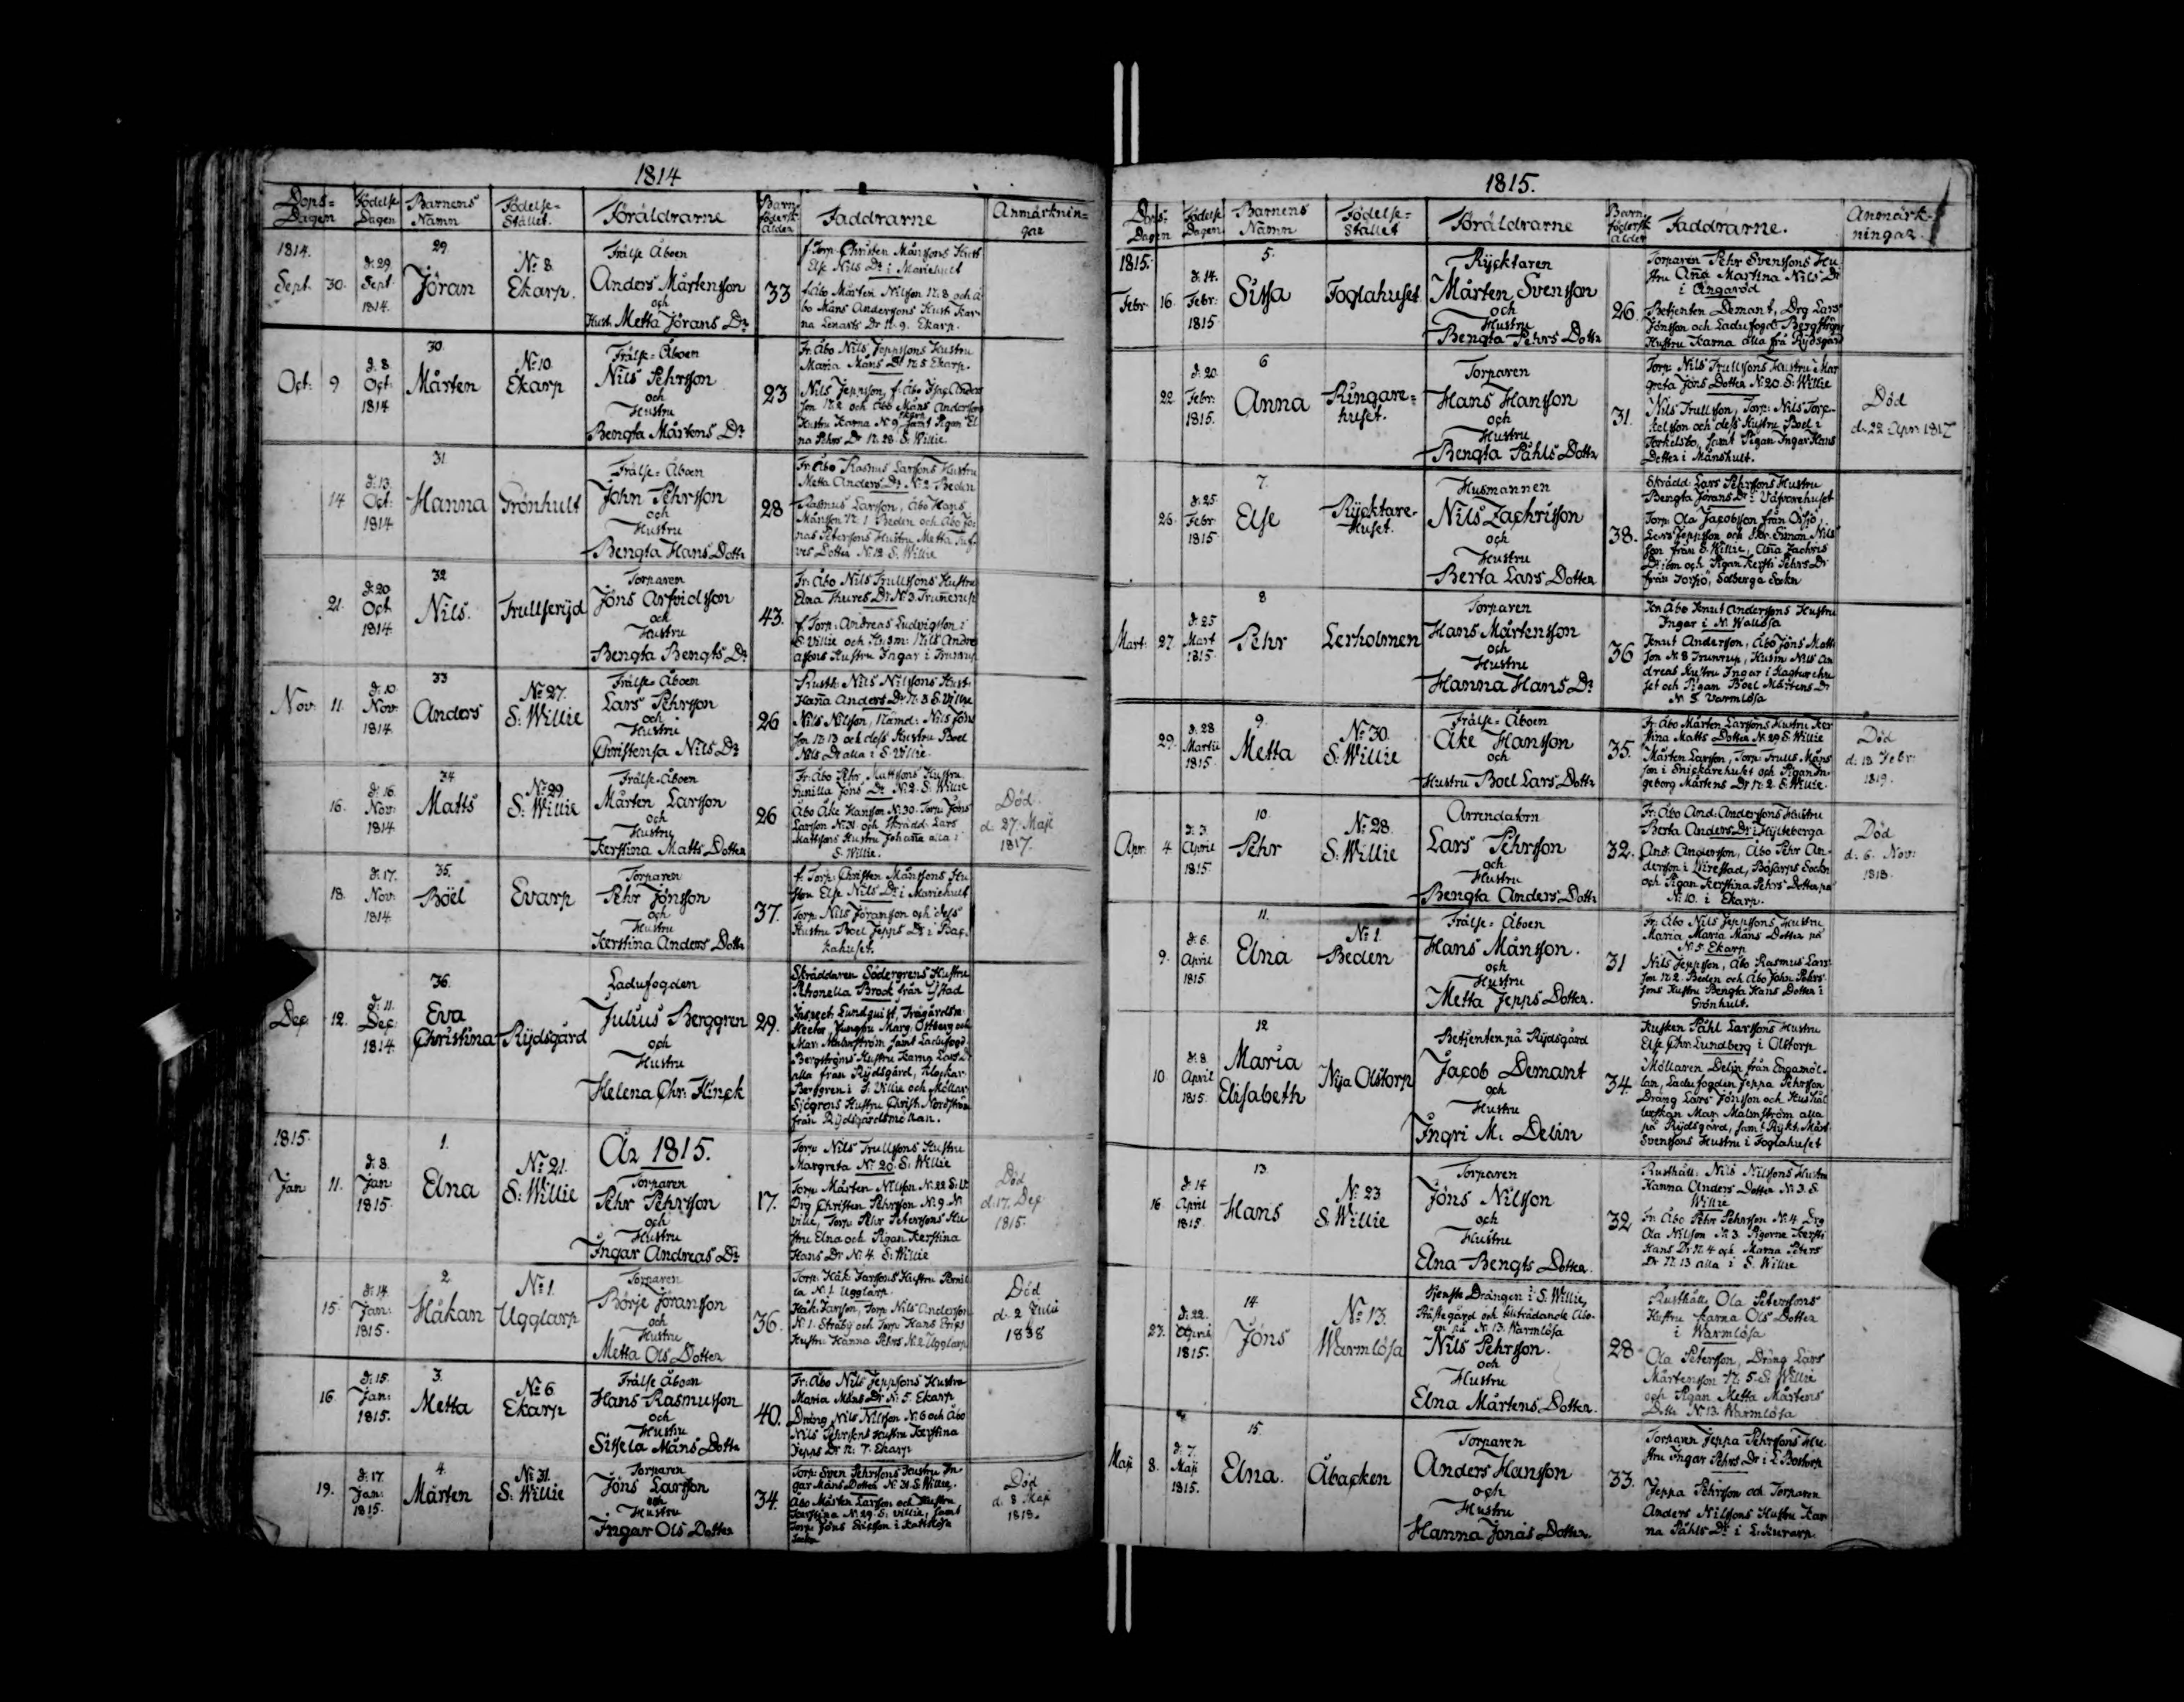 1814
Dops-Dagen Födelse Dagen Barnens Namn Födelse-Stället. Föräldrarne Barnfödersk: Ålder Faddrarne Anmärknin-gar
1814.
Sept. 30.
d: 29 Sept. 1814.
29
Jöran
No: 8. Ekarp.
Frälse Åboen
Anders Mårtensson
och
Hust. Metta Jörans Dr
33
f. Torp: Christen Månssons Hust
Else Nils Dr i Mariehult
Åbo Mårten Nilsson N: 8 och å
bo Måns Anderssons Hust: Kar-
na Lenarts Dr N: 9. Ekarp.
Oct: 9.
d. 8. Oct: 1814
30.
Mårten
No: 10. Ekarp
Frälse-Åboen
Nils Pehrsson
och
Hustru
Bengta Mårtens Dr
23
Fr. Åbo Nils Jeppssons Hustru
Maria Måns Dr N: 5 Ekarp.
Nils Jeppsson,
och Åbo Måns Anderssons
Hustru Karna N: 9 samt Pigan El
na Pehrs Dr N: 28. S: Willie
14
d: 13. Oct: 1814
31
Hanna
Grönhult
Frälse-Åboen
John Pehrsson
och
Hustru
Bengta Hans Dottr
28
Fr. Åbo Rasmus Larssons Hustru
Metta Anders Dr N: 2 Beden
Rasmus Larsson, Åbo Hans
Månsson N: 1 Beden och Åbo Jö-
nas Peterssons Hustru Metta Tuf-
ves Dotter N: 12 S: Willie
21.
d: 20 Oct 1814
32
Nils.
Trullserijd
Torparen
Jöns Arfvidsson
och
Hustru
Bengta Bengts Dr
43.
Fr: Åbo Nils Trullssons Hustru
Elna Thures Dr N: 3. Trunnerup
f. Torp: Andreas Ludvigsson i
S: Villie och Husm: Nils Andre
assons Hustru Ingar i Trunnerup
Nov: 11.
d: 10. Nov: 1814.
33
Anders
No: 27. S: Willie
Frälse-Åboen
Lars Pehrsson
och
Hustru
Christensa Nils Dr
26
Rusth: Nils Nilssons Hust:
Hanna Anders Dr N: 3 S: Willie
Nils Nilsson, Nämd: Nils Jöns
son N: 13 och dess Hustru Boel
Nils Dr alla i S: Villie.
16.
d: 16. Nov: 1814
34.
Matts
No: 29. S: Willie
Frälse-Åboen
Mårten Larsson
och
Hustru
Kerstina Matts Dotter
26
Fr: Åbo Pehr Mattssons Hustru
Gunilla Jöns Dr N: 2. S: Willie
Åbo Åke Hansson N: 30. Torp: Jöns
Larsson N: 31. och Skrädd: Lars
Mattssons Hustru Johanna alla i
S: Willie.
Död.
d: 27. Maji
1817.
18.
d: 17. Nov: 1814
35.
Böel
Evarp
Torparen
Pehr Jönsson
och
Hustru
Kerstina Anders Dottr
37.
f. Torp: Christen Månssons Hu
stru Else Nils Dr i Mariehult
Torp: Nils Jöransson och dess
Hustru Boel Jepps Dr i Bac-
kahuset.
Dec: 12.
d. 11. Dec: 1814
36.
Eva
Christina
Rijdsgård
Ladufogden
Julius Berggren
och
Hustru
Helena Chr: Hinck
29.
Skräddaren Södergrens Hustru
Petronella Brock från Ijstad
Inspect: Lundquist, Trägårdsm:
Heckter, Jungfru Marg: Östberg och
Mar: Malmström samt Ladufogd:
Bergströms Hustru Karna Lars Dr
alla från Rijdsgård, Klockar
Bergren i S: Villie och Möllar
Sjögrens Hustru Christ: Nordström
från Rijdsgårdsmöllan.
1815.
Jan: 11.
d. 8. Jan: 1815.
1.
Elna
No: 21. S: Willie
År 1815.
Torparen
Pehr Pehrsson
och
Hustru
Ingar Andreas Dr
17.
Torp: Nils Trullssons Hustru
Margreta No: 20. S: Willie
Torp: Mårten Nilsson N: 22 S: W
Drg Christen Pehrsson N: 9. N:
ville, Torp: Pehr Peterssons Hu
stru Elna och Pigan Kerstina
Hans Dr N: 4. S: Willie
Död
d: 17. Dec
1815.
15.
d: 14. Jan: 1815.
2.
Håkan
No: 1. Ugglarp
Torparen
Börje Jöransson
och
Hustru
Metta Ols Dotter
36.
Torp: Håk: Larssons Hustru Pernil
la N: 1. Ugglarp.
Håk: Larsson, Torp: Nils Andersson
N: 1. Ströby och Torp: Hans Erics
Hustru Hanna Pehrs N: 2 Ugglarp
Död
d: 2 Julii
1838
16.
d: 15. Jan: 1815.
3.
Metta
No: 6. Ekarp
Frälse Åboen
Hans Rasmusson
och
Hustru
Sissela Måns Dotter
40.
Fr: Åbo Nils Jeppssons Hustru
Maria Måns Dr N: 5. Ekarp
Dräng Nils Nilsson N: 6 och Åbo
Nils Pehrssons Hustru Kerstina
Jepps Dr N: 7. Ekarp
19.
d: 17. Jan: 1815.
4.
Mårten
No: 31. S: Willie
Torparen
Jöns Larsson
och
Hustru
Ingar Ols Dotter
34.
Torp: Sven Pehrssons Hustru In
gar Måns Dotter N: 31 S: Willie.
Åbo Mårten Larsson och Hustru
Kerstina N: 29. S: Villie, samt
Torp: Jöns Ericsson i
Död
d. 8 Maji
1818.
1815.
Dops-Dagen Födelse Dagen Barnens Namn Födelse-Stället Föräldrarne Barnföderk: Ålder Faddrarne. Anmärk-ningar.
1815.
Febr: 16.
d: 14. Febr: 1815
5.
Sissa
Foglahuset
Rycktaren
Mårten Svensson
och
Hustru
Bengta Pehrs Dottr
26.
Torparen Pehr Svenssons Hu
stru Anna Martina Nils Dr
i Ängaröd
Betjenten Demant, Drg Lars
Jönsson och Ladufogd: Bergströms
Hustru Karna alla frå Rijdsgård
22
d: 20. Febr: 1815.
6
Anna
Ringare-huset.
Torparen
Hans Hansson
och
Hustru
Bengta Påhls Dottr
31.
Torp: Nils Trullssons Hustru Mar
greta Jöns Dotter N: 20. S: Willie
Nils Trullsson, Torp: Nils Torc-
kelsson och dess Hustru Boel i
Torkelsbo, samt Pigan Ingar Hans
Dotter i Månshult.
Död
d: 22 Apr: 1817
26.
d: 25 Febr: 1815
7.
Else
Rycktare-Huset.
Husmannen
Nils Zachrisson
och
Hustru
Berta Lars Dotter
38.
Skrädd: Lars Pehrssons Hustru
Bengta Jörans Dr i Väfvarehuset
Torp: Ola Jacobsson från Örsjö,
Lars Jeppsson och Skr: Simon Nils
son från S: Willie, Anna Zachris
Dr ibm och Pigan Kersti Pehrs Dr
från Torsjö, Solberga Sockn
Mart: 27.
d: 25 Mart 1815
8
Pehr
Lerholmen
Torparen
Hans Mårtensson
och
Hustru
Hanna Hans Dr
36
Kr: Åbo Knut Anderssons Hustru
Ingar i N: Wallösa
Knut Andersson, Åbo Jöns Matts
son N: 8 Trunrup, Husm: Nils An
dreas Hustru Ingar i
set och Pigan Boel Mårtens Dr
N: 5. Varmlösa
29.
d: 28 Martii 1815
9.
Metta
No: 30. S: Willie
Frälse-Åboen
Åke Hansson
och
Hustru Boel Lars Dottr
35.
Fr: Åbo Mårten Larssons Hustru Ker
stina Matts Dotter N: 29 S: Willie
Mårten Larsson, Torp: Trulls Måns
son i Snickarehuset och Pigan In-
geborg Mårtens Dr N: 2. S: Willie.
Död
d: 13 Febr:
1819.
Apr: 4.
d: 3. April 1815
10.
Pehr
No: 28. S: Willie
Arrendatorn
Lars Pehrsson
och
Hustru
Bengta Anders Dottr
32.
Fr: Åbo And: Anderssons Hustru
Berta Anders Dr i Hylteberga
And: Andersson, Åbo Pehr An-
dersson i Virrestad, Bösarps Sockn
och Pigan Kerstina Pehrs Dotter på
N: 10. i Ekarp.
Död
d: 6. Nov:
1818.
9.
d: 6. April 1815.
11.
Elna
No: 1. Beden
Frälse-Åboen
Hans Månsson.
och
Hustru
Metta Jepps Dotter.
31
Fr: Åbo Nils Jeppssons Hustru
Maria Maria Måns Dotter på
N: 5. Ekarp
Nils Jeppsson, Åbo Rasmus Lars-
son N: 2. Beden och Åbo John Pehrs-
sons Hustru Bengta Hans Dotter i
Grönhult.
10.
d: 8. April 1815
12
Maria
Elisabeth
Nya Olstorp
Betjenten på Rijdsgård
Jacob Demant
och
Hustru
Ingri M: Delin
34.
Kusken Påhl Larssons Hustru
Else Chr: Lundberg i Olstorp
Möllaren Delin från Engamöl-
lan, Ladufogden Jeppa Pehrsson
Dräng Lars Jönsson och Hushål
lerskan Mar: Malmström alla
på Rijdsgård, samt Rykt: Mårt:
Svenssons Hustru i Foglahuset
16.
d: 14 April 1815
13.
Hans
No: 23 S: Willie
Torparen
Jöns Nilsson
och
Hustru
Elna Bengts Dotter.
32
Rusthåll: Nils Nilssons Hustru
Hanna Anders Dotter N: 3. S:
Willie
Fr: Åbo Pehr Pehrsson N: 4. Drg
Ola Nilsson N: 3. Pigorne Kersti
Hans Dr N: 4 och Marna Peters
Dr N: 13 alla i S: Willie
23.
d: 22. April 1815.
14.
Jöns
No: 13. Warmlösa
Tjenste Drängen i S: Willie,
Prästegård och tillträdande Åbo-
en på N: 13. Warmlösa
Nils Pehrsson.
och
Hustru
Elna Mårtens Dotter.
28
Rusthåll: Ola Peterssons
Hustru Karna Ols Dotter
i Warmlösa
Ola Petersson, Dräng Lars
Mårtensson N: 5. S: Willie
och Pigan Metta Mårtens
Dottr N: 13. Warmlösa
Maji 8.
d. 7. Maji 1815.
15.
Elna.
Åbacken
Torparen
Anders Hansson
och
Hustru
Hanna Jonas Dotter.
33.
Torparen Jeppa Pehrssons Hu
stru Ingar Pehrs Dr i L: Bostorp
Jeppa Pehrsson och Torparen
Anders Nilssons Hustru Kar
na Påhls Dr i L: